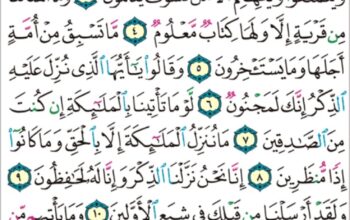 مِن قَرْيَةٍ إِلَّا وَلَهَا كِتَابٌ مَّعْلُومٌ ٤ مَّا تَسْبِقُ مِنْ أُمَّةٍ
أَجَلَهَا وَمَا يَسْتَـْٔخِرُونَ ٥ وَقَالُوا۟ يَـٰٓأَيُّهَا ٱلَّذِى نُزِّلَ عَلَيْهِ
ٱلذِّكْرُ إِنَّكَ لَمَجْنُونٌ ٦ لَّوْ مَا تَأْتِينَا بِٱلْمَلَـٰٓئِكَةِ إِن كُنتَ
مِنَ ٱلصَّـٰدِقِينَ ٧ مَا نُنَزِّلُ ٱلْمَلَـٰٓئِكَةَ إِلَّا بِٱلْحَقِّ وَمَا كَانُوٓا۟
إِذًا مُّنظَرِينَ ٨ إِنَّا نَحْنُ نَزَّلْنَا ٱلذِّكْرَ وَإِنَّا لَهُۥ لَحَـٰفِظُونَ ٩
وَلَقَدْ أَرْسَلْنَا مِن قَبْلِكَ فِى شِيَعِ ٱلْأَوَّلِينَ ١٠ وَمَا يَأْتِيهِم مِّن